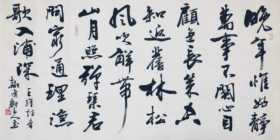 晚年惟好靜
萬事不關心自
顧無長策空
知返舊林松
風吹解帶
山月照彈琴君
問窮通理漁
歌入浦深